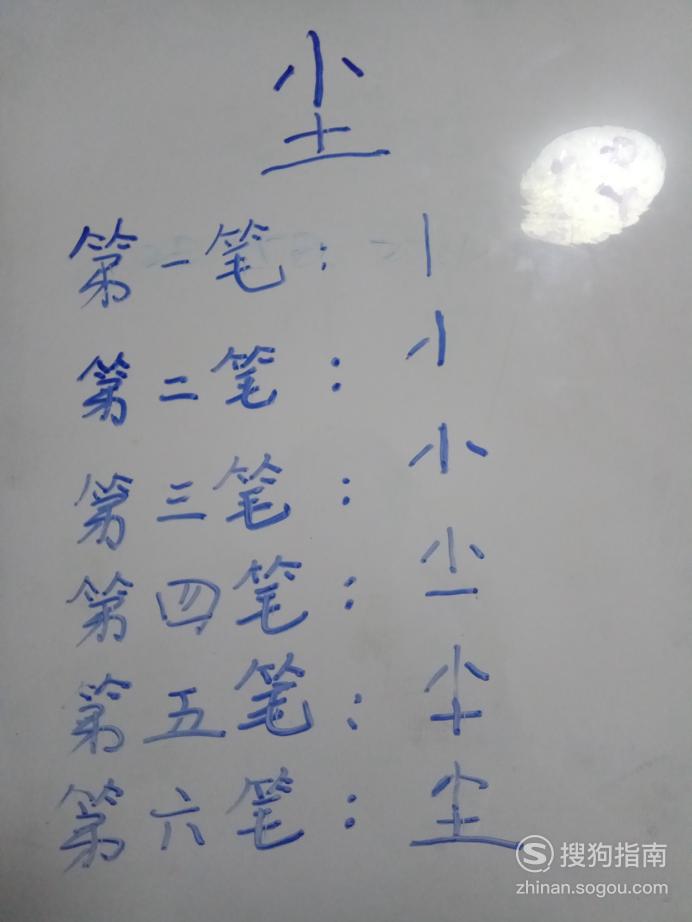 尘
第一笔：丨
第二笔：
第三笔：小
第四笔：
第五笔：
第六笔：尘
搜狗指南
zhinan.sogou.com